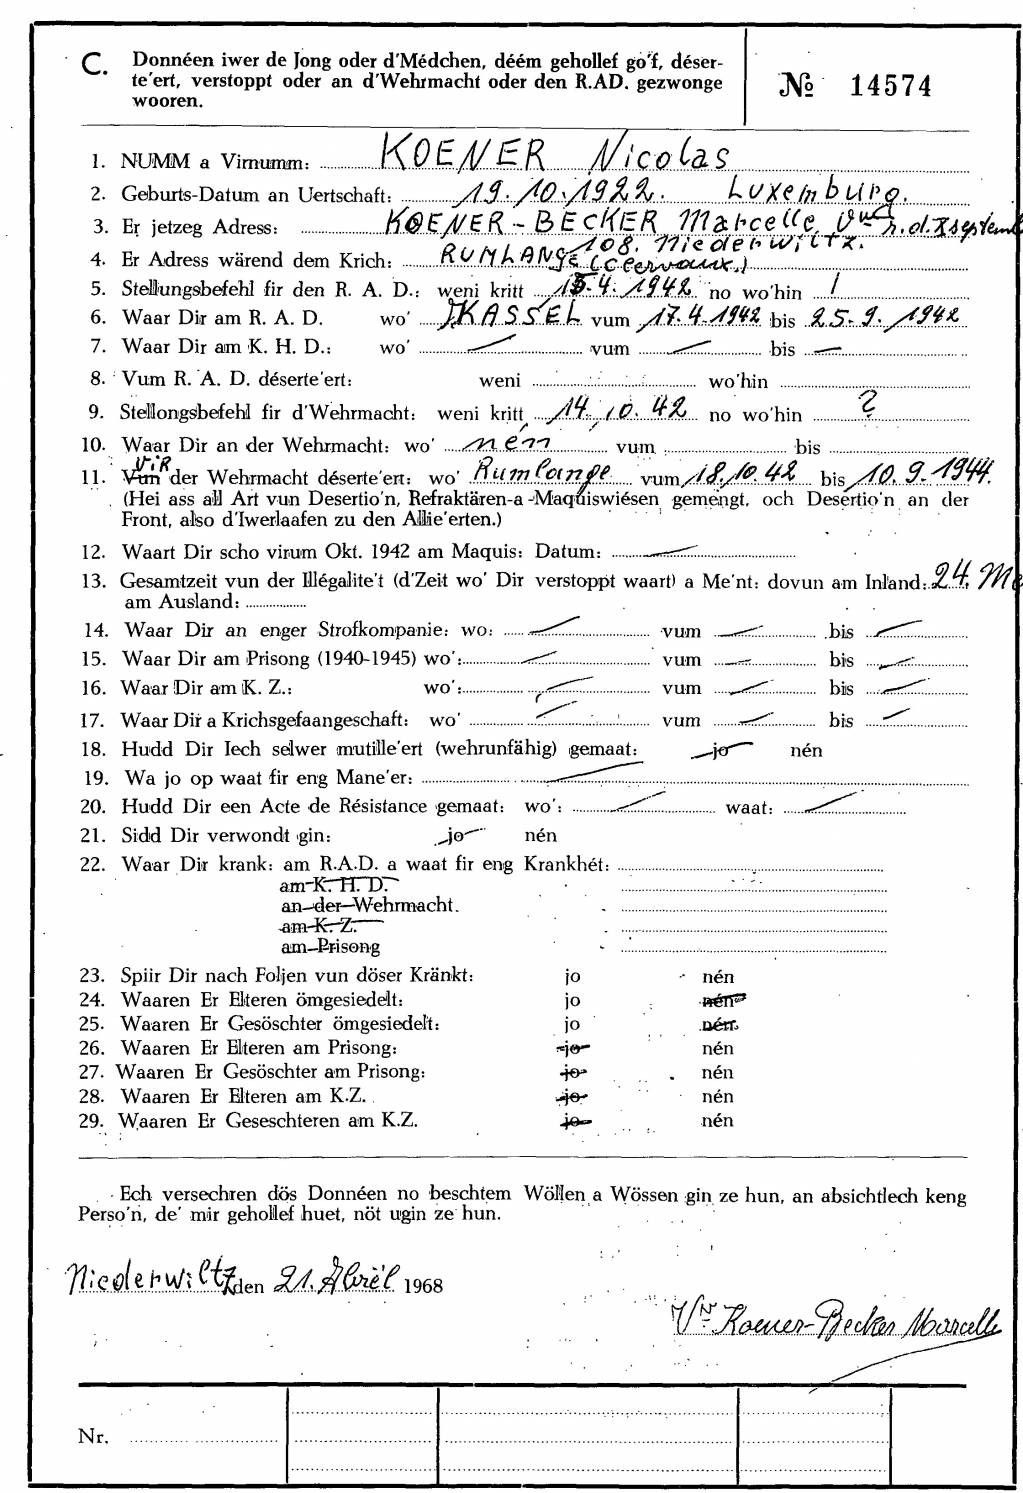 C. Donnéen iwer de Jong oder d'Médchen, déém gehollef go'f, déser-
te'ert, verstoppt oder an d'Wehrmacht oder den R.AD. gezwonge
wooren.
№ 14574
1. NUMM a Virnumm: KOENER Nicolas
2. Geburts-Datum an Uertschaft: 19.10.1922. Luxemburg.
3. Er jetzeg Adress: KOENER-BECKER Marcelle, Vve r.d.X septemb
108. Niederwiltz.
4. Er Adress wärend dem Krich: RUMLANGE (Clervaux.)
5. Stellungsbefehl fir den R. A. D.: weni kritt 15.4.1942 no wo'hin /
6. Waar Dir am R. A. D. wo' KASSEL vum 17.4.1942 bis 25.9.1942
7. Waar Dir am K. H. D.: wo' — vum — bis —
8. Vum R. A. D. déserte'ert: weni wo'hin
9. Stellongsbefehl fir d'Wehrmacht: weni kritt 14.10.42 no wo'hin ?
10. Waar Dir an der Wehrmacht: wo' nén vum bis
ViR
11. Vun der Wehrmacht déserte'ert: wo' Rumlange vum 18.10.42 bis 10.9.1944.
(Hei ass all Art vun Desertio'n, Refraktären-a -Maquiswiésen gemengt, och Desertio'n an der
Front, also d'Iwerlaafen zu den Allie'erten.)
12. Waart Dir scho virum Okt. 1942 am Maquis: Datum: —
13. Gesamtzeit vun der Illégalite't (d'Zeit wo' Dir verstoppt waart) a Me'nt: dovun am Inland: 24. Me
am Ausland:
14. Waar Dir an enger Strofkompanie: wo: — vum — bis —
15. Waar Dir am Prisong (1940-1945) wo': — vum — bis —
16. Waar Dir am K. Z.: wo': — vum — bis —
17. Waar Dir a Krichsgefaangeschaft: wo' — vum — bis —
18. Hudd Dir Iech selwer mutille'ert (wehrunfähig) gemaat: jo nén
19. Wa jo op waat fir eng Mane'er: —
20. Hudd Dir een Acte de Résistance gemaat: wo': — waat: —
21. Sidd Dir verwondt gin: jo nén
22. Waar Dir krank: am R.A.D. a waat fir eng Krankhét:
am K. H. D.
an der Wehrmacht.
am K. Z.
am Prisong
23. Spiir Dir nach Foljen vun döser Kränkt: jo nén
24. Waaren Er Elteren ömgesiedelt: jo nén
25. Waaren Er Gesöschter ömgesiedelt: jo nén
26. Waaren Er Elteren am Prisong: jo nén
27. Waaren Er Gesöschter am Prisong: jo nén
28. Waaren Er Elteren am K.Z. jo nén
29. Waaren Er Geseschteren am K.Z. jo nén
Ech versechren dös Donnéen no beschtem Wöllen a Wössen gin ze hun, an absichtlech keng
Perso'n, de' mir gehollef huet, nöt ugin ze hun.
Niederwiltz den 21. Abrël 1968
Vve Koener-Becker Marcelle
Nr.